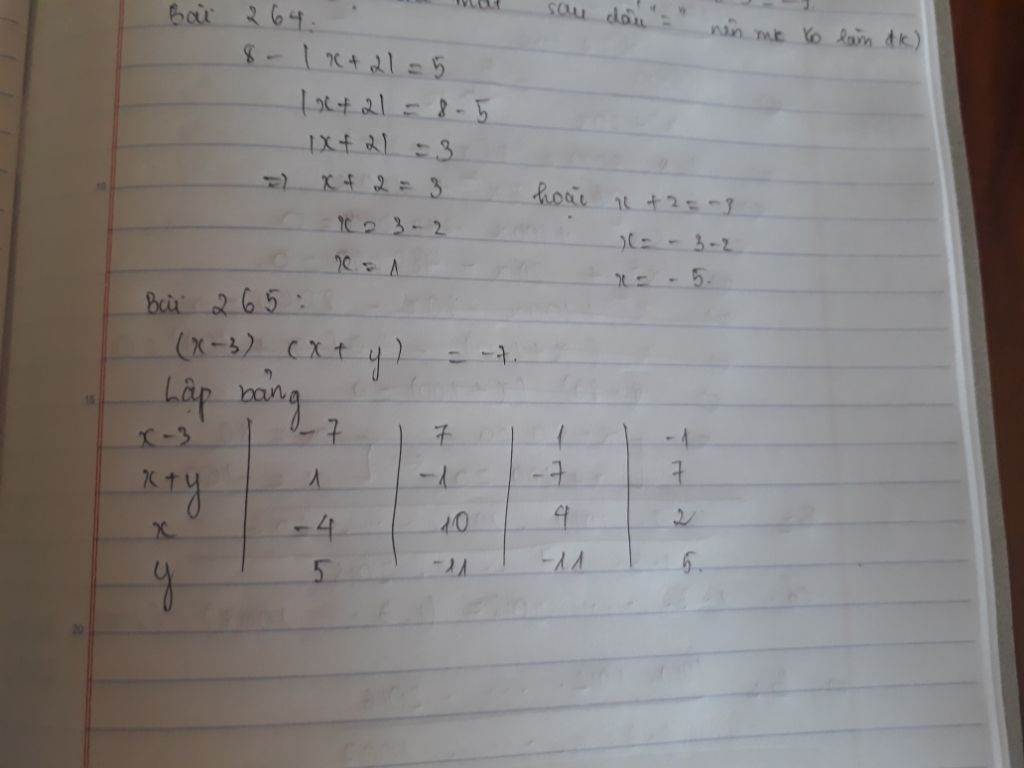 sau dấu "=" nên mk ko làm đk)
Bài 264:
8 - |x + 2| = 5
|x + 2| = 8 - 5
|x + 2| = 3
=> x + 2 = 3 hoặc x + 2 = -3
x = 3 - 2 x = - 3 - 2
x = 1 x = - 5.
Bài 265:
(x-3) (x + y) = -7.
Lập bảng
x-3 -7 7 1 -1
x+y 1 -1 -7 7
x -4 10 4 2
y 5 -11 -11 5.
10
15
20